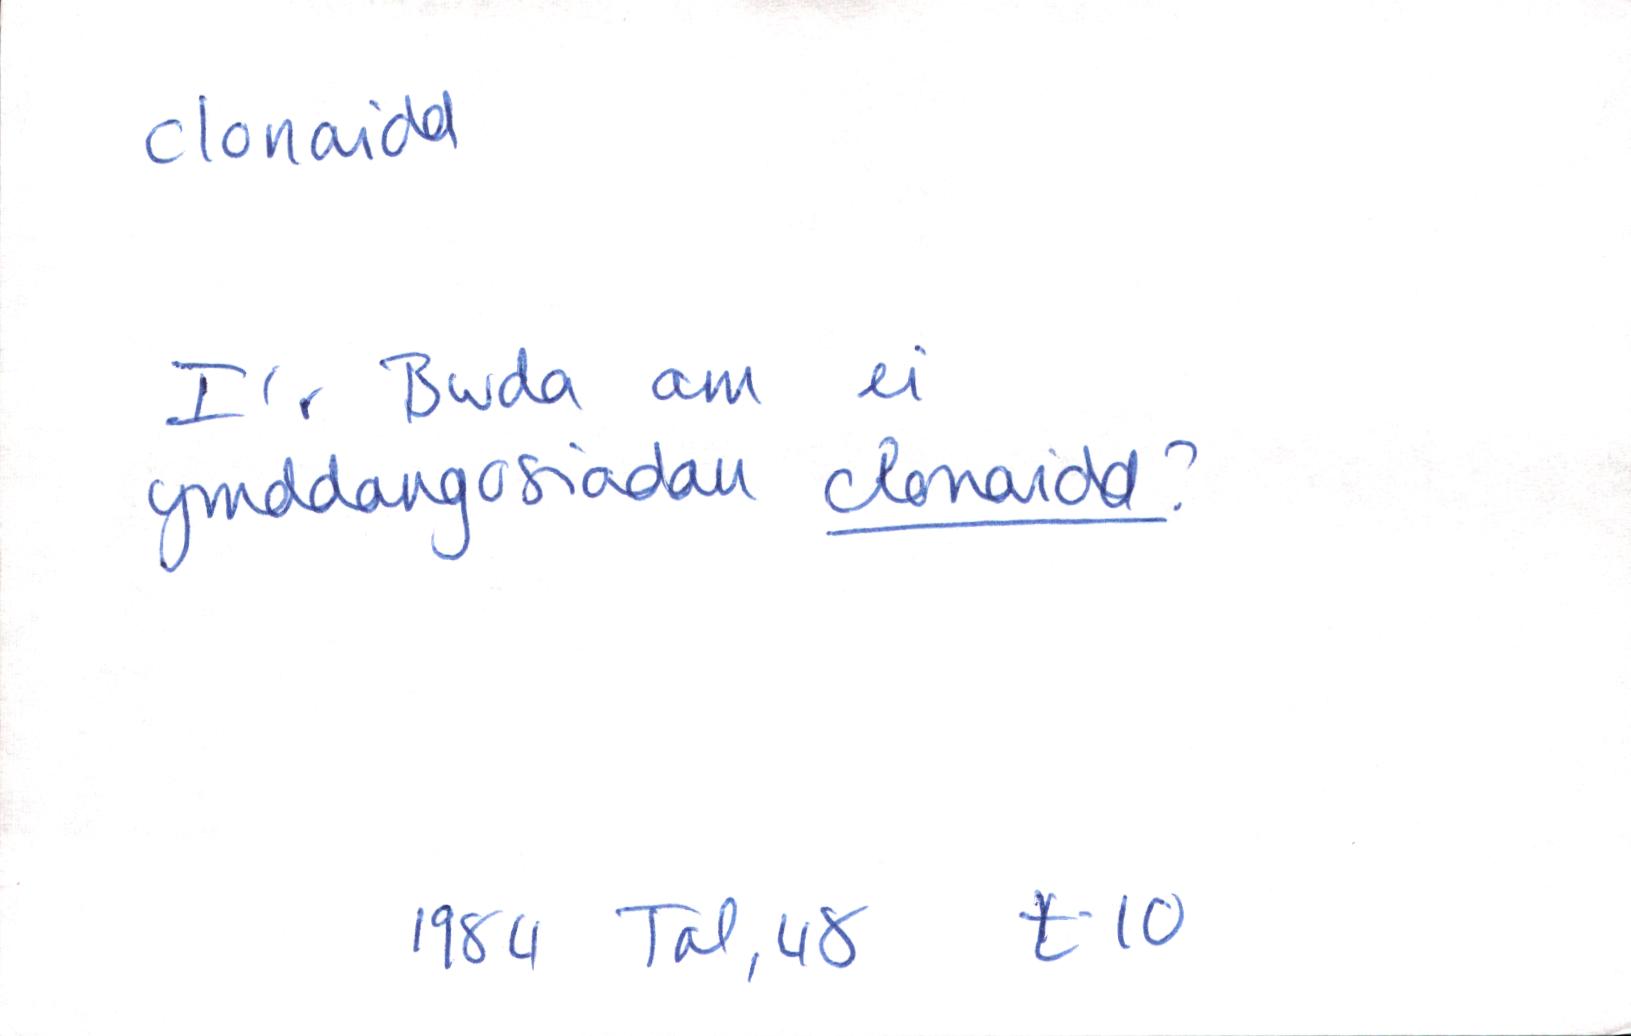 clonaidd
I'r Bwda am ei
ymddangosiadau clonaidd?
1984 Tal, 48 t-10